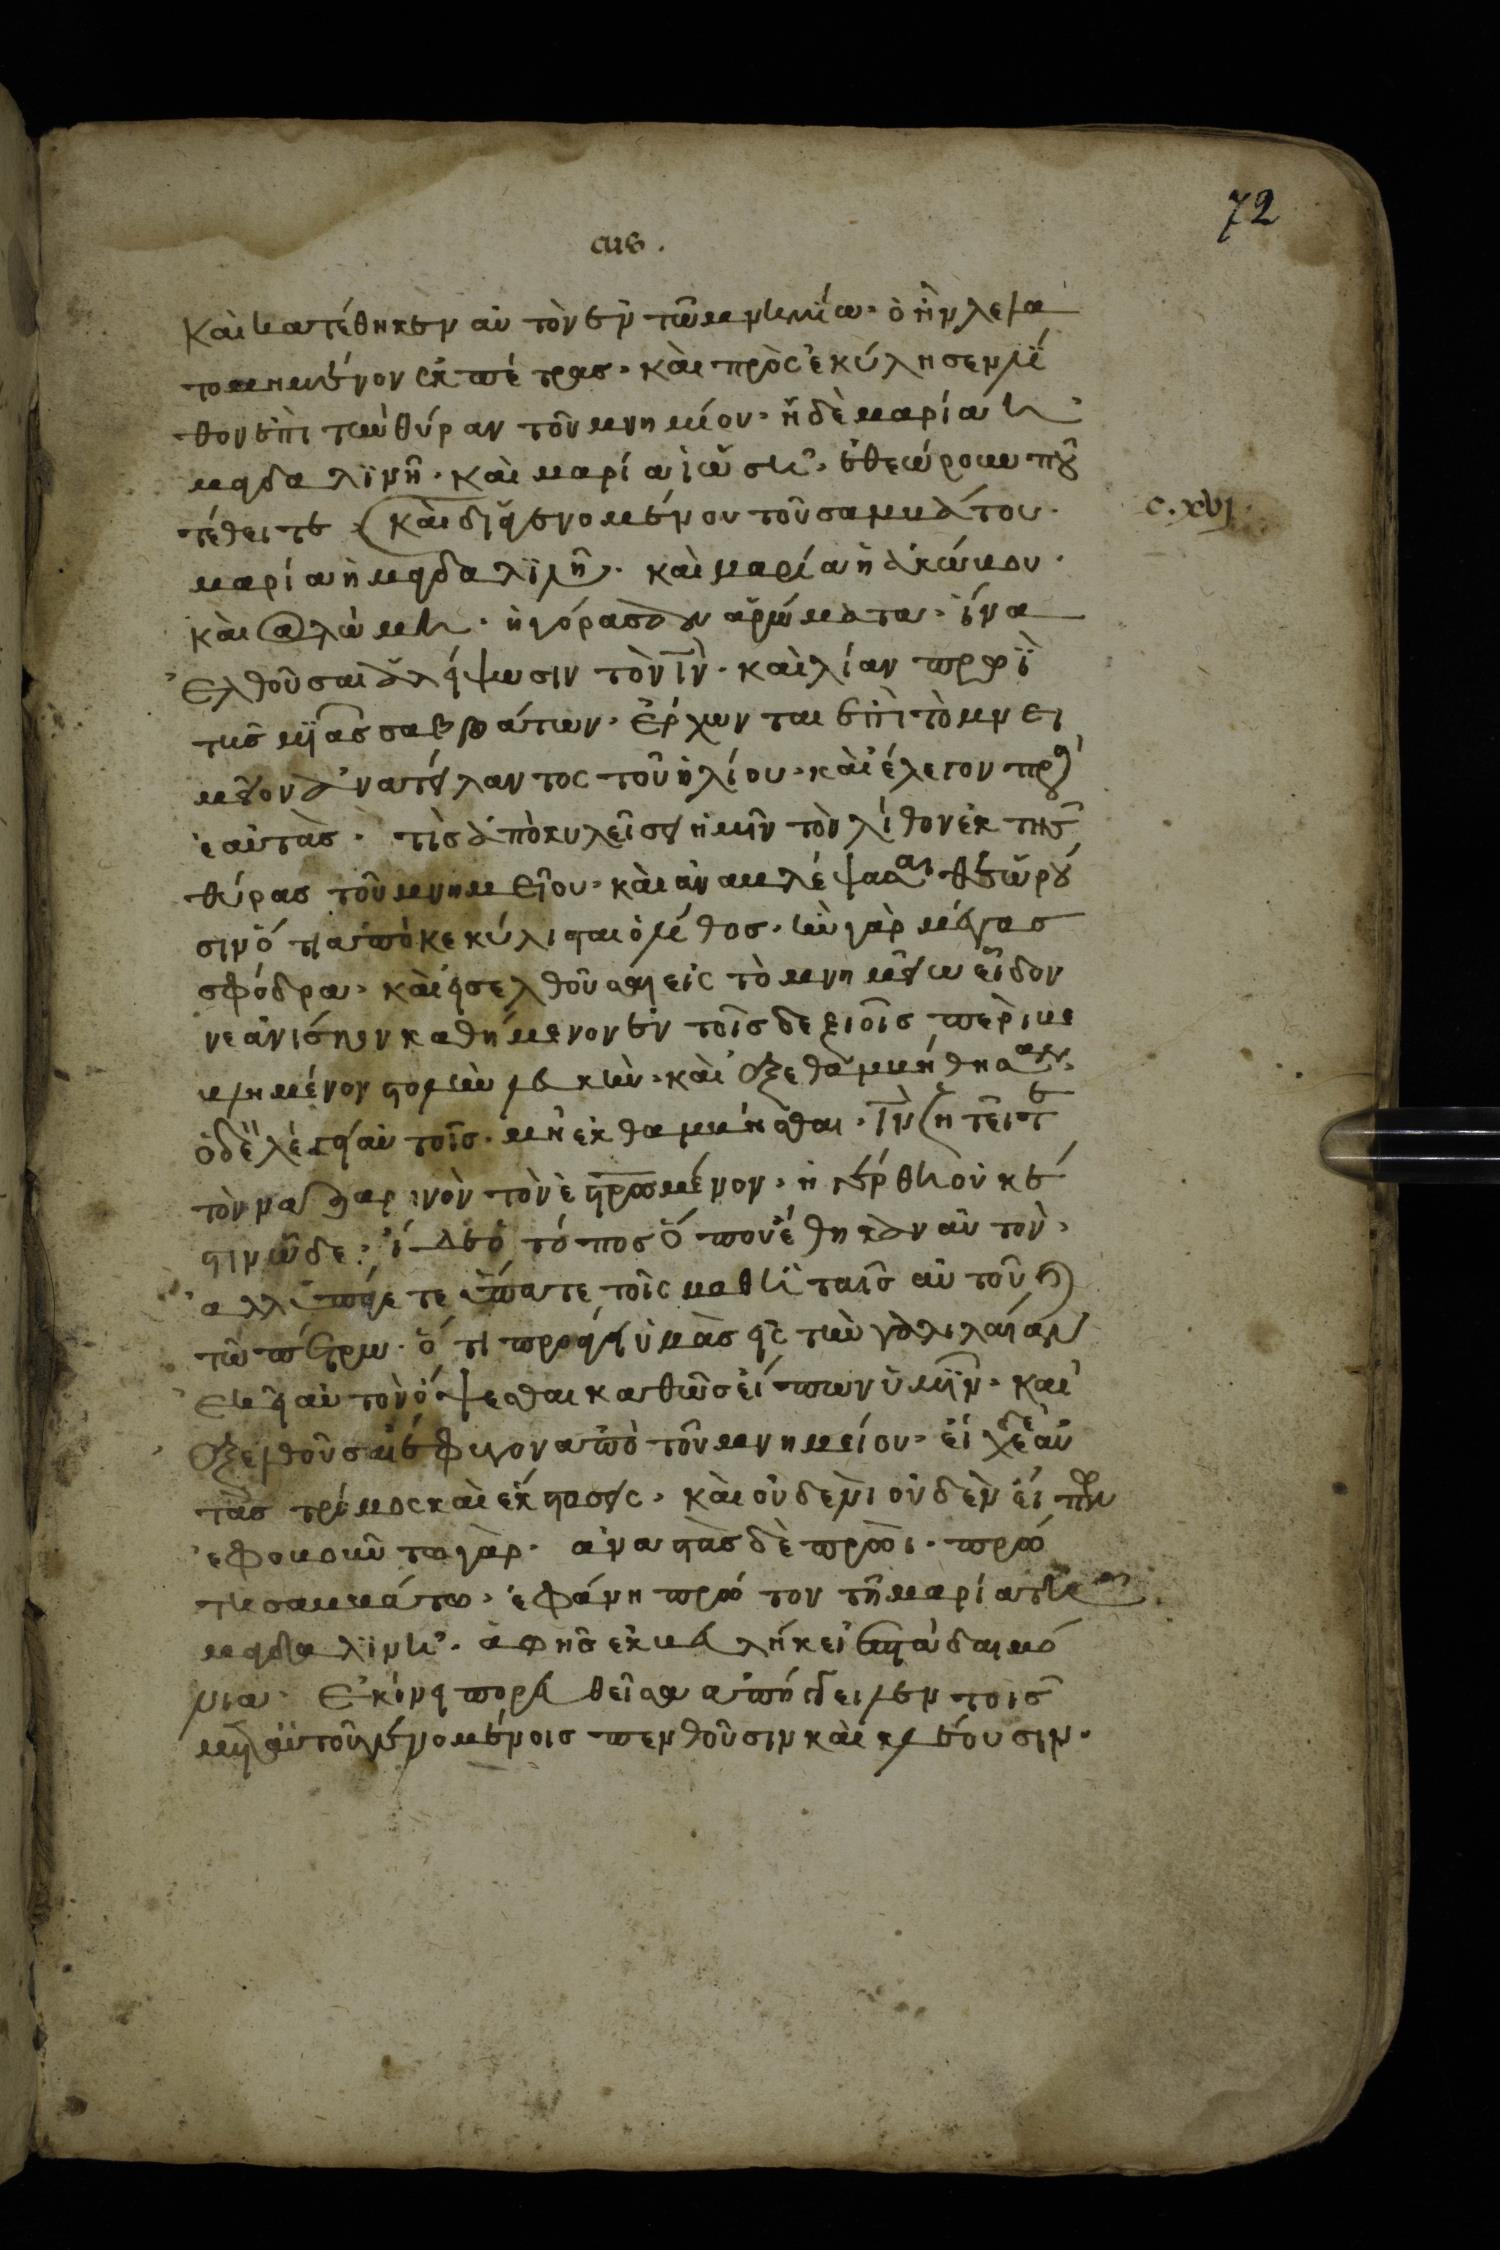 72
και κατέθηκεν αυτον εν τω μνημίω· ο ην λελα
τομημένον εκ πέτρας· και προσεκύλησεν λί
θον επι την θύραν του μνημίου· η δε μαρία η
μαγδαλινη· και μαρία ιωση· εθεώρουν που
τέθειτε· και διαγενομένου του σαμβάτου·
μαρία η μαγδαλινη· και μαρία η ιακώμου·
και σαλώμη· ηγόρασαν αρώματα· ίνα
ελθούσαι αλήψωσιν τον ιν· και λίαν πρωΐ
της μιας σαββάτων· έρχωνται επι το μνει
μείον ανατείλαντος του ηλίου· και έλεγον προς
εαυτάς· τις αποκυλείσει ημιν τον λίθον εκ της
θύρας του μνημείου· και αναμλέψασαι θεωρού
σιν ότι αποκεκύλισται ο λίθος· ην γαρ μέγας
σφόδρα· και εισελθούσαι εις το μνημείον είδον
νεανίσκον καθήμενον εν τοις δεξιοις περιμε
μλημένον στολην λευκην· και εξεθαμμήθησαν·
ο δε λέγει αυτοις· μη εκθαμμήσθαι· ιν ζητειτε
τον ναζαρινον τον εσταυρωμένον· ηγέρθη ουκ έ
στιν ώδε· ίδε ο τόπος όπου έθηκαν αυτον·
αλλ υπάγετε είπατε τοις μαθηταις αυτου και
τω πέτρω· ότι προάγει υμας εις την γαλιλαίαν
εκει αυτον όψεσθαι καθως είπων υμιν· και
εξελθούσαι έφυγον απο του μνημείου· είχε δε αυ
τας τρόμος και έκστασις· και ουδενι ουδεν είπων
εφομουντο γαρ· αναστας δε πρωι· πρώ
τη σαμμάτω· εφάνη πρώτον τη μαρία τη
μαγδαλινη· αφ ης εκμεμλήκει επτα δαιμό
νια· εκίνη πορευθείσα απήγγειλεν τοις
μετ αυτου γενομένοις πενθούσιν και κλέουσιν·
c. xvj.